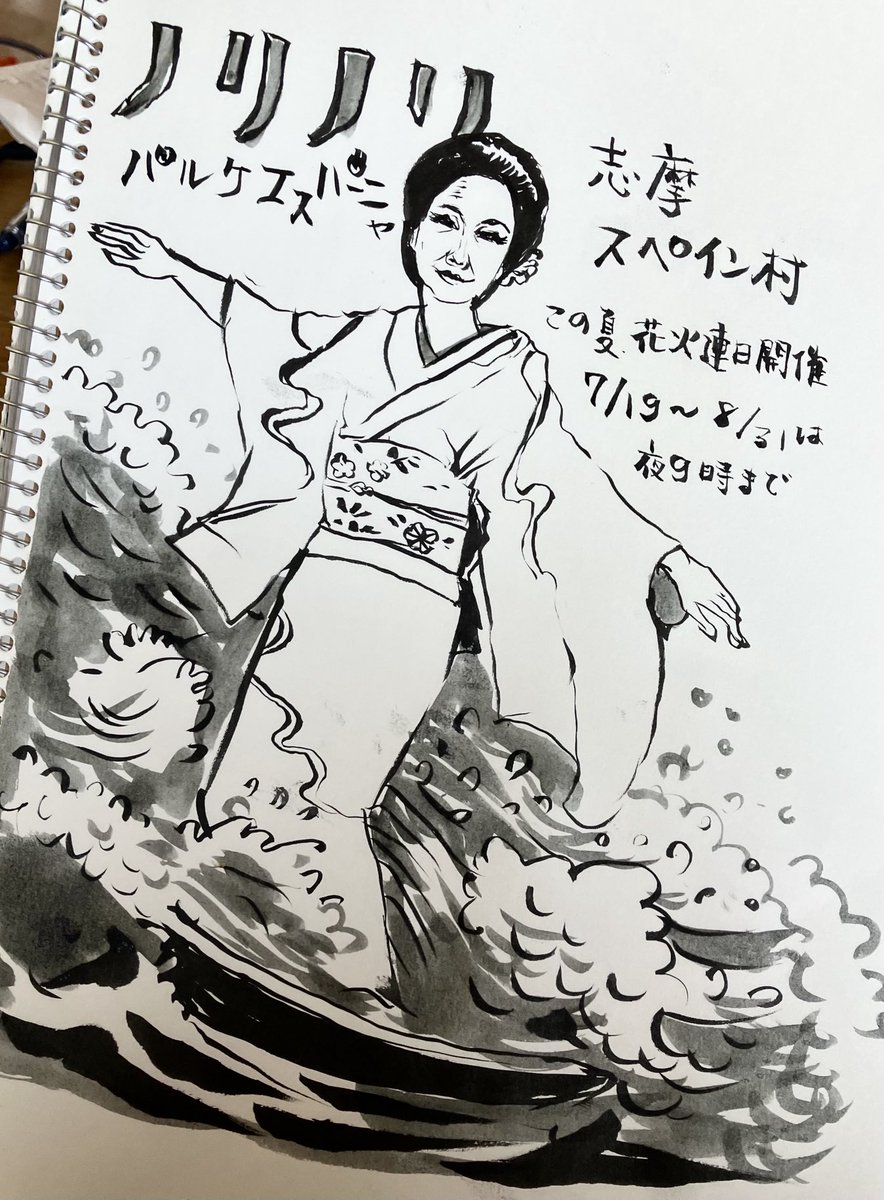 ノリノリ
パルケエスパーニャ
志摩
スペイン村
この夏花火連日開催
7/19〜8/31は
夜9時まで